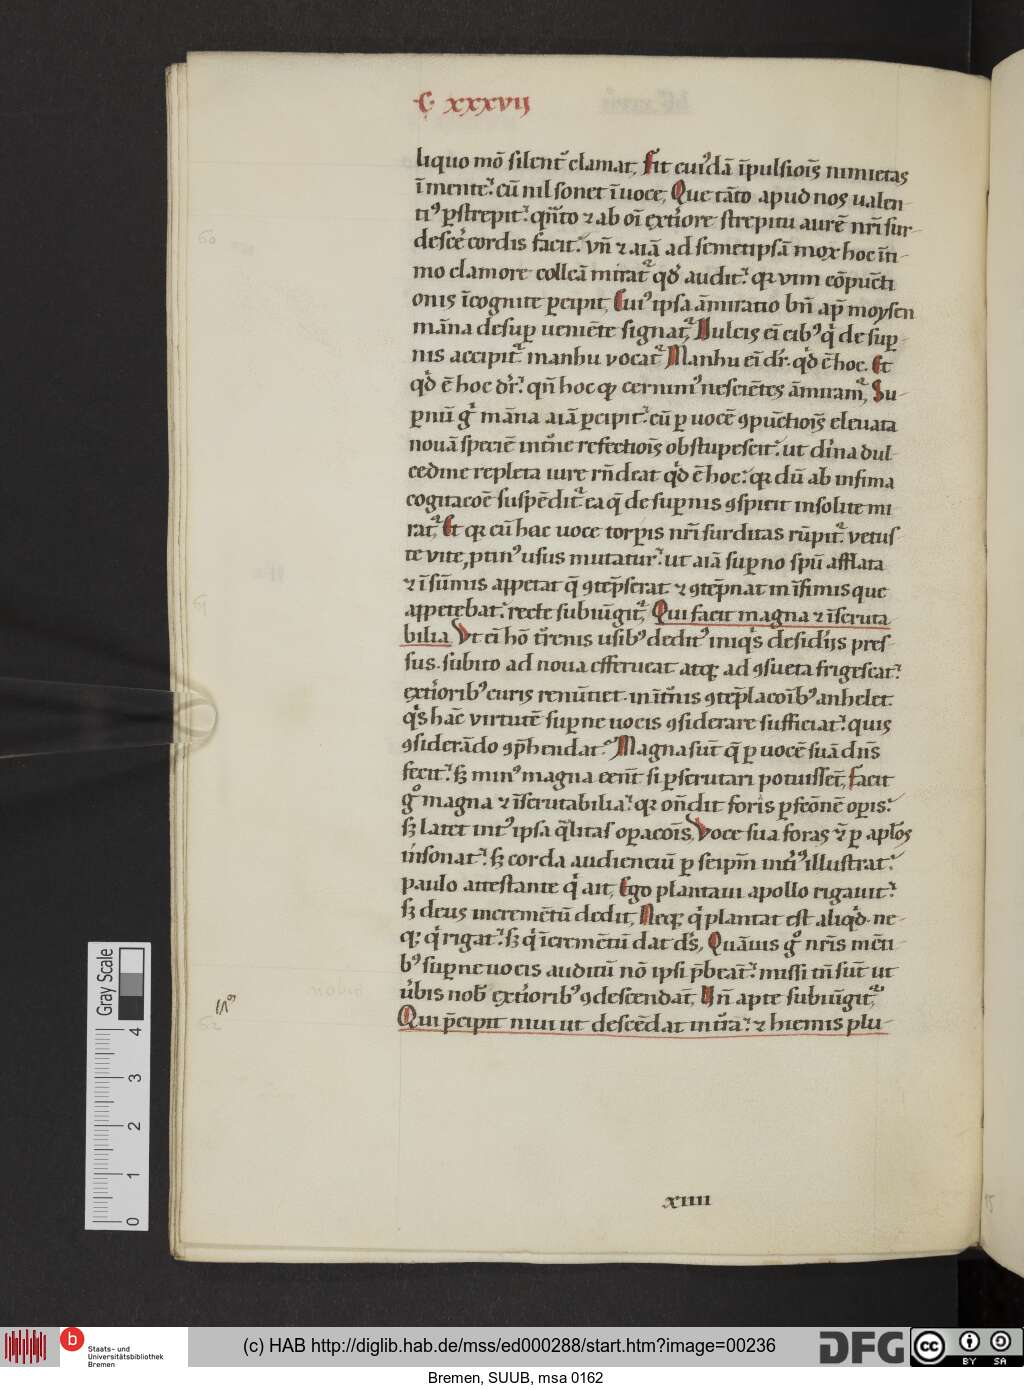 C xxxvij
liquo mō silent᷑ clamat, Fit cui᷒dā īpulsiois̄ nimietas
ī mente. cū nil sonet ī uoce, Que tāto apud nos ualen-
ti᷒ ꝑstrepit. qn̄to ⁊ ab oī ext᷑iore strepitu aurē nr̄i sur-
descē cordis facit. vn̄ ⁊ aiā ad semetipsā mox hoc īti-
mo clamore collcā mirat᷑ qd̓ audit. qꝛ vim cōpūcti
onis īcognite ꝑcipit, Cui᷒ ipsa āmiratio bn̄ ap̄ moysen
māna desuꝑ ueniēte signat᷑, Dulcis ei cib᷒ q̇ de suꝑ
nis accipit᷑. manhu vocat᷑ Manhu ei dr̄. qd̓ ē hoc. Et
qd̓ ē hoc dr̄. qn̄ hoc qd̓ cernim᷒ nesciētes āmiram᷑, Su-
ꝑnū gͥ māna aiā ꝑcipit. cū ꝑ uocē ꝯpūctiois̄ eleuata
nouā speciē int᷑ne refectiois̄ obstupescit. ut diīna dul
cedine repleta iure rn̄deat qd̓ ē hoc. qꝛ dū ab infima
cogitacoē suspēdit᷑. ea q̄ de suꝑnis ꝯspicit insolite mi
rat᷑, Et qꝛ cū hac uoce torpis nr̄i surditas rūpit᷑. vetus
te vite ꝓtin᷒ usus mutatur. ut aiā suꝑno spū afflata
⁊ ī sūmis appetat q̄ ꝯtēpserat. ⁊ ꝯtēpnat in īfimis que
appetebat. recte subiūgit᷑, Qui facit magna ⁊ īscruta
bilia Vt ei hō t᷑renis usib᷒ dedit᷒ iniqͥs desidijs pres
sus. subito ad noua efferueat atqꝫ ad ꝯsueta frigescat.
ext᷑iorib᷒ curis renūciet. in īt᷑nis ꝯtēplacoīb᷒ anhelet.
qͥs hāc virtutē suꝑne uocis ꝯsiderare sufficiat. quis
ꝯsiderādo ꝯp̄hendat. Magna sūt q̄ ꝑ uocē suā dn̄s
fecit. sꝫ min᷒ magna eēnt si ꝑscrutari potuissēt, Facit
gͦ magna ⁊ īscrutabilia. qꝛ on̄dit foris ꝑfcōnē opis.
sꝫ latet int᷒ ipsa q̄litas oꝑacois̄, Voce sua foras ēt ꝑ apl̄os
insonat. sꝫ corda audienciū ꝑ seipm̄ int᷑i᷒ illustrat.
paulo attestante qͥ ait, Ego plantaui apollo rigauit.
sꝫ deus incremētū dedit, Neqꝫ qͥ plantat est aliqd̓. ne-
qꝫ qͥ rigat. sꝫ qͥ īcremētū dat ds̄, Quāuis gͦ nr̄is mēti
b᷒ suꝑne uocis auditū nō ipsi p̄beāt. missi tn̄ sūt ut
ūbis nob̄ ext᷑iorib᷒ ꝯdescendāt, Vn̄ apte subiūgit᷑,
Qui p̄cipit niui ut descēdat in t᷑rā. ⁊ hiemis plu-
xiiii
Gray Scale
4
3
2
1
0
b
Staats- und
Universitätsbibliothek
Bremen
(c) HAB http://diglib.hab.de/mss/ed000288/start.htm?image=00236
DFG
cc
BY SA
Bremen, SUUB, msa 0162